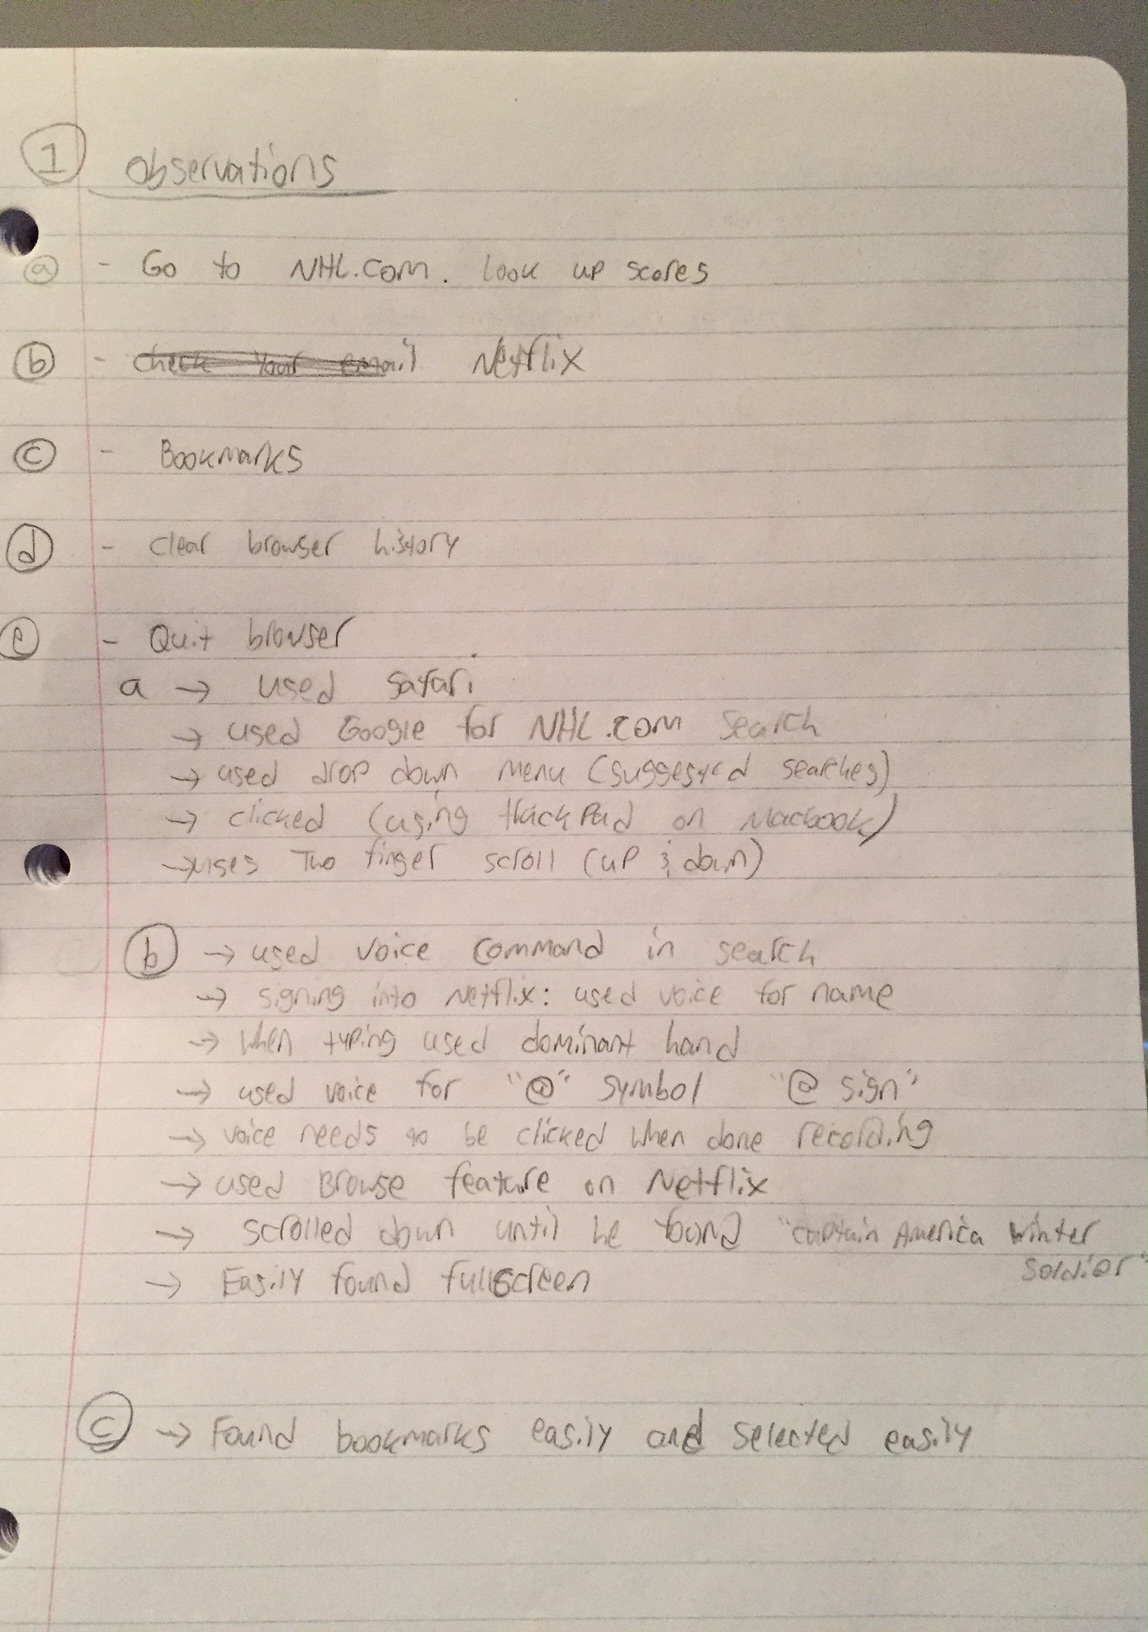 1 Observations
a - Go to NHL.com. Look up scores
b - check your email Netflix
c - Bookmarks
d - clear browser history
e - Quit browser
a → used Safari
→ used Google for NHL.com search
→ used drop down menu (suggested searches)
→ clicked (using trackpad on Macbook)
→ uses Two finger scroll (up & down)
b → used voice command in search
→ signing into Netflix: used voice for name
→ when typing used dominant hand
→ used voice for "@" symbol "@ sign"
→ voice needs to be clicked when done recording
→ used Browse feature on Netflix
→ scrolled down until he found "Captain America Winter
Soldier"
→ Easily found fullscreen
c → Found bookmarks easily and selected easily